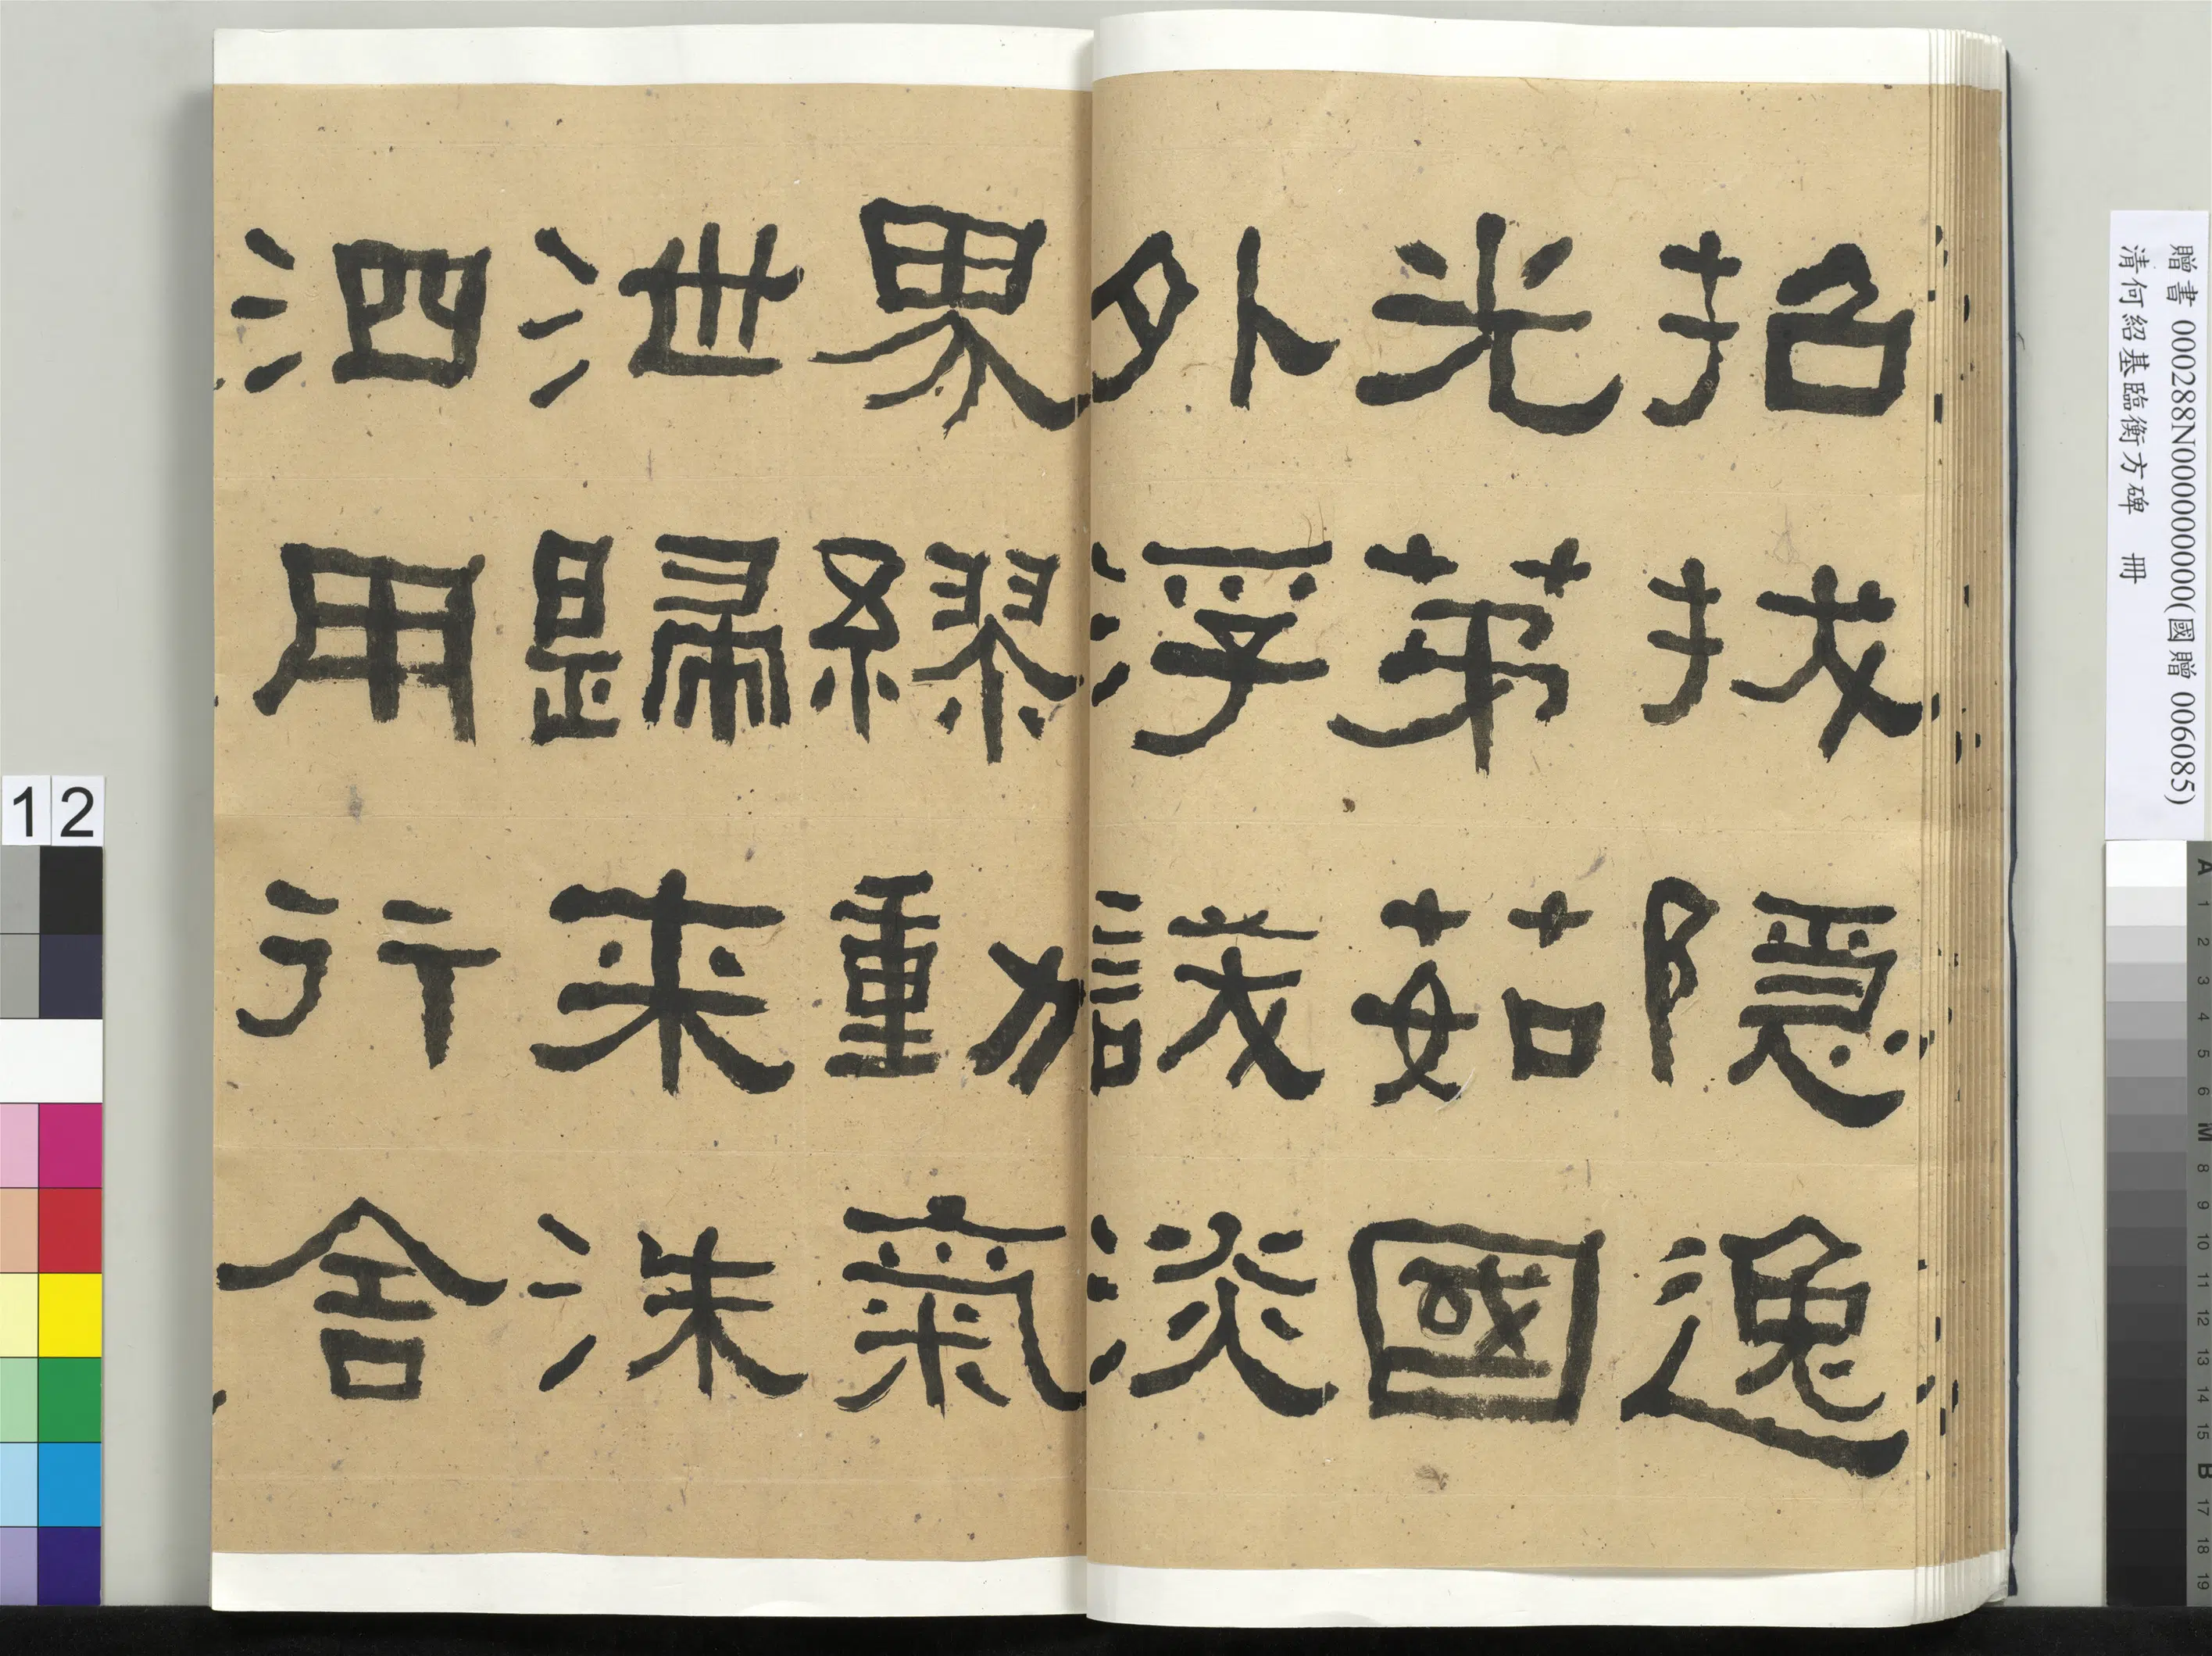 招拔隱逸
光茅茹國
外浮謀淡
界繆動氣
泄歸来洙
泗用行舍
贈書 000288N000000000(國贈 006085)
清何紹基臨衡方碑 冊
12
A 1 2 3 4 5 6 M 8 9 10 11 12 13 14 15 B 17 18 19